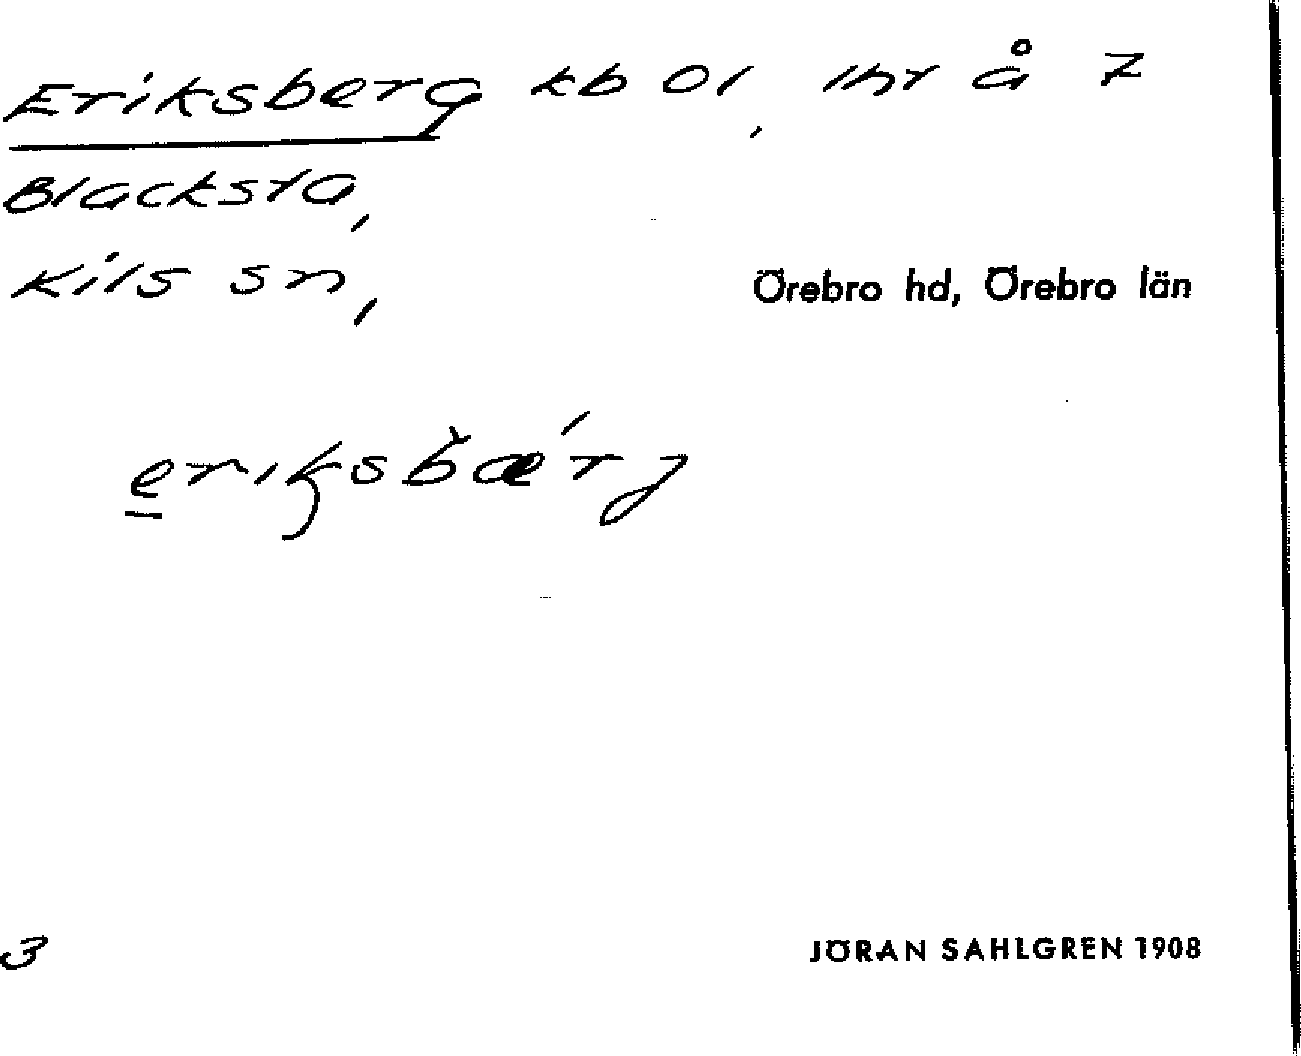 Eriksberg kb 01, lhr å 7
Blacksta,
Kils sn,
Örebro hd, Örebro län
eriksbæ´rj
3
JÖRAN SAHLGREN 1908